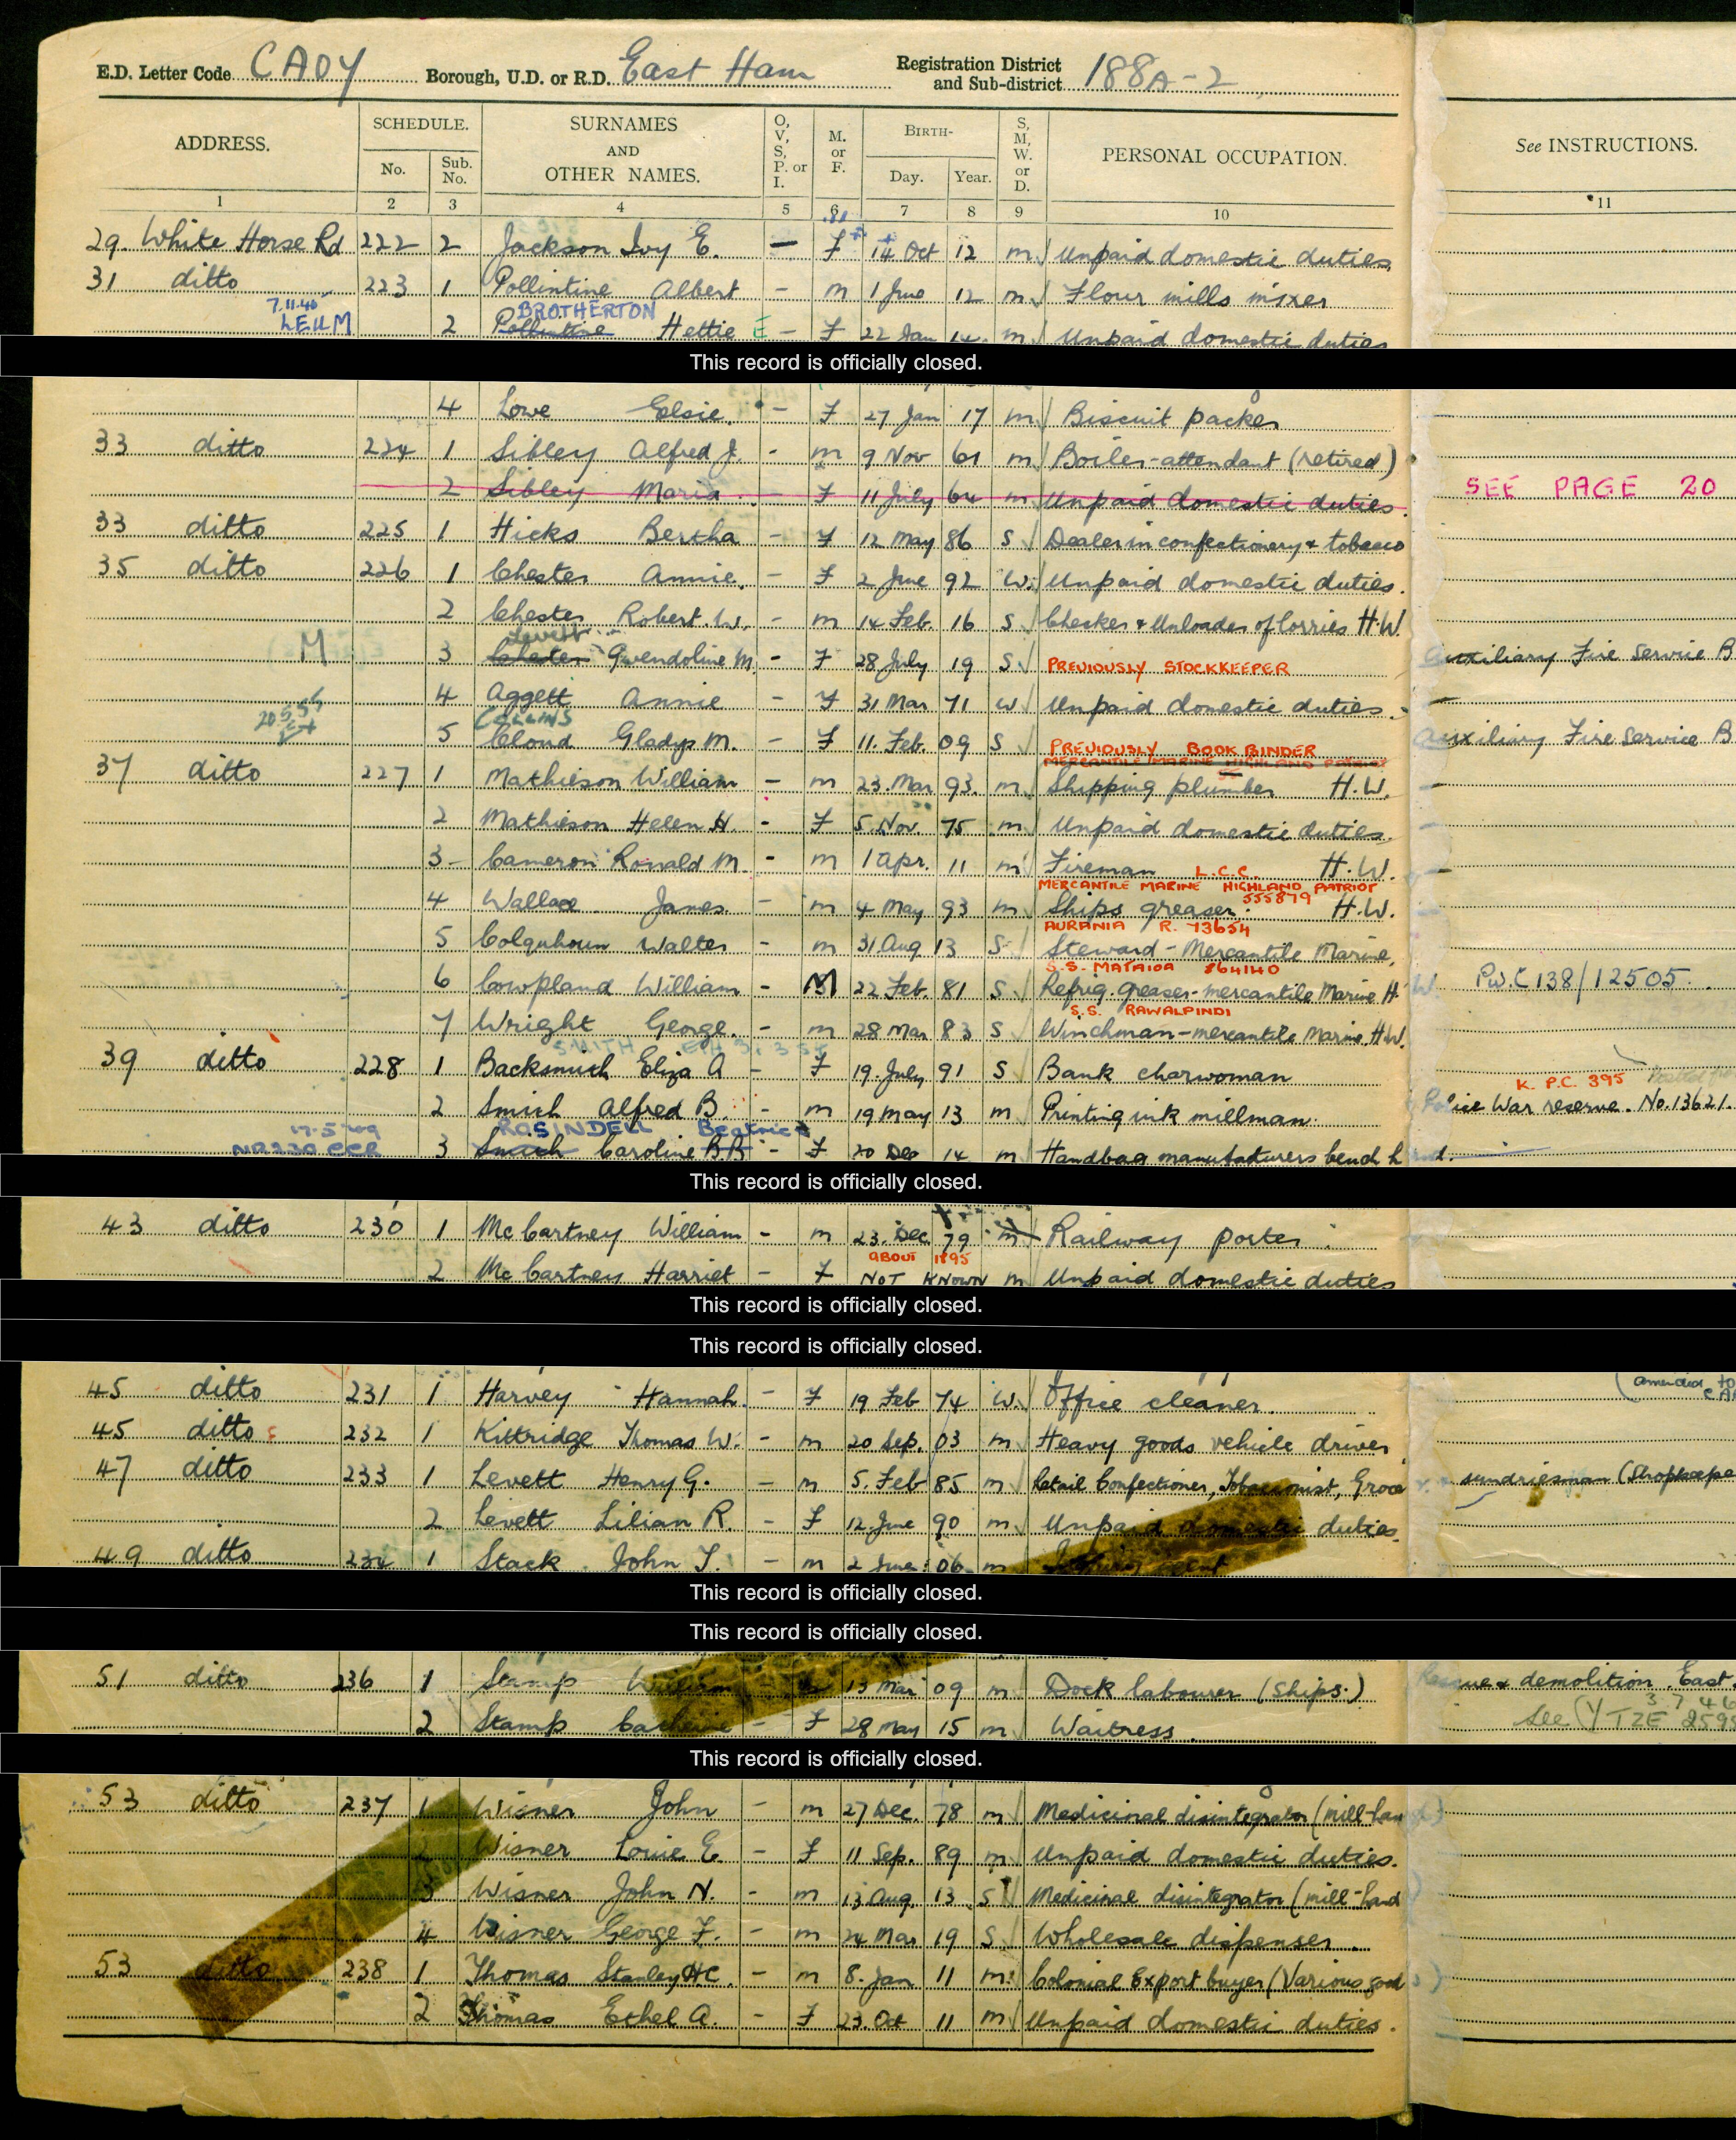 E.D. Letter Code CADY Borough, U.D. or R.D. East Ham Registration District and Sub-district 188A-2
ADDRESS. SCHEDULE. No. Sub. No. SURNAMES AND OTHER NAMES. O, V, S, P. or I. M. or F. BIRTH- Day. Year. S, M, W. or D. PERSONAL OCCUPATION. See INSTRUCTIONS.
1 2 3 4 5 6 7 8 9 10 11
29. White Horse Rd 222 2 Jackson Ivy E. — F 14 Oct 12 m Unpaid domestic duties
31 ditto 223 1 Pollintine Albert - m 1 June 12 m Flour mills mixer
7.11.40 BROTHERTON
LEUM 2 Pollintine Hettie E - F 22 Jan 14 m Unpaid domestic duties
This record is officially closed.
4 Lowe Elsie - F 27 Jan 17 m Biscuit packer
33 ditto 224 1 Sibley Alfred J. - m 9 Nov 61 m Boiler-attendant (retired)
2 Sibley Maria - F 11 July 64 m Unpaid domestic duties. SEE PAGE 20
33 ditto 225 1 Hicks Bertha - F 12 May 86 S Dealer in confectionery & tobacco
35 ditto 226 1 Chester Annie - F 2 June 92 W. Unpaid domestic duties.
2 Chester Robert W. - m 14 Feb. 16 S Checker & Unloader of lorries H.W.
Levett
M 3 Chester Gwendoline M. - F 28 July 19 S PREVIOUSLY STOCKKEEPER Auxiliary Fire Service B
4 Aggett Annie - F 31 Mar 71 W Unpaid domestic duties.
20.5.56 COLLINS
5 Cloud Gladys M. - F 11. Feb. 09 S PREVIOUSLY BOOK BINDER Auxiliary Fire Service B
MERCANTILE MARINE HIGHLAND PATRIOT
37 ditto 227 1 Mathieson William - m 23. Mar 93. m Shipping plumber H.W.
2 Mathieson Helen H. - F 5. Nov 75 m Unpaid domestic duties.
3 Cameron Ronald M. - m 1 Apr. 11 m Fireman L.C.C. H.W.
MERCANTILE MARINE HIGHLAND PATRIOT
4 Wallace James - m 4 May 93 m Ships greaser. 555879 H.W.
AURANIA R. 73654
5 Colquhoun Walter - m 31 Aug 13 S Steward - Mercantile Marine,
S.S. MATAROA 864140
6 Cowpland William - M 22 Feb. 81 S Refrig. greaser-mercantile Marine H.W. Pw.C138/12505.
S.S. RAWALPINDI
7 Wright George. - m 28 Mar 83 S Winchman-mercantile Marine H.W.
SMITH
39 ditto 228 1 Backsmith Eliza A - F 19. July 91 S Bank charwoman
K. P.C. 395
2 Smith Alfred B. - m 19 May 13 m Printing ink millman. Police War reserve. No. 13621.
17.5.49 ROSINDELL Beatrice
NR230 CCR 3 Smith Caroline B.B - F 20 Dec 14 m Handbag manufacturers bench hand.
This record is officially closed.
43 ditto 230 1 McCartney William - m 23. Dec 79 m Railway porter
ABOUT 1895
2 McCartney Harriet - F NOT KNOWN m Unpaid domestic duties
This record is officially closed.
This record is officially closed.
45 ditto 231 1 Harvey Hannah. - F 19 Feb 74 W. Office cleaner. (amended to
45 ditto 232 1 Kittridge Thomas W. - m 20 Sep. 03 m Heavy goods vehicle driver
47 ditto 233 1 Levett Henry G. - m 5. Feb 85 m Retail Confectioner, Tobacconist, Grocer sundriesman (Shopkeepe
2 Levett Lilian R. - F 12. June 90 m Unpaid domestic duties
49 ditto 234 1 Stack John J. - m 2 June 06 m agent
This record is officially closed.
This record is officially closed.
51 ditto 236 1 Stamp William 13 Mar 09 m Dock labourer (Ships.) Rescue & demolition. East
3 7 46
2 Stamp Catherine - F 28 May 15 m Waitress See (YTZE 259
This record is officially closed.
53 ditto 237 1 Wisner John - m 27 Dec. 78 m Medicinal disintegrator (mill-hand)
Wisner Louie E. - F 11 Sep. 89 m Unpaid domestic duties.
3 Wisner John N. - m 13. Aug 13 S Medicinal disintegrator (mill-hand
4 Wisner George F. - m 24 Mar 19 S Wholesale dispenser
53 ditto 238 1 Thomas Stanley H C. - m 8. Jan 11 m Colonial Export buyer (Various goods)
2 Thomas Ethel A. - F 23. Oct 11 m Unpaid domestic duties.